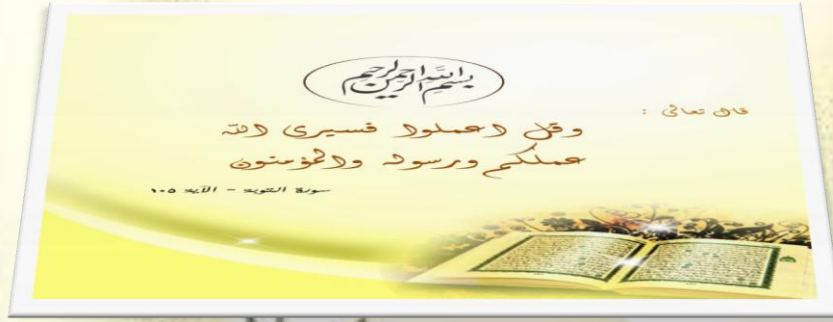 بسم الله الرحمن الرحيم
قال تعالى :
وقل اعملوا فسيرى الله
عملكم ورسوله والمؤمنون
سورة التوبة - الآية ١٠٥